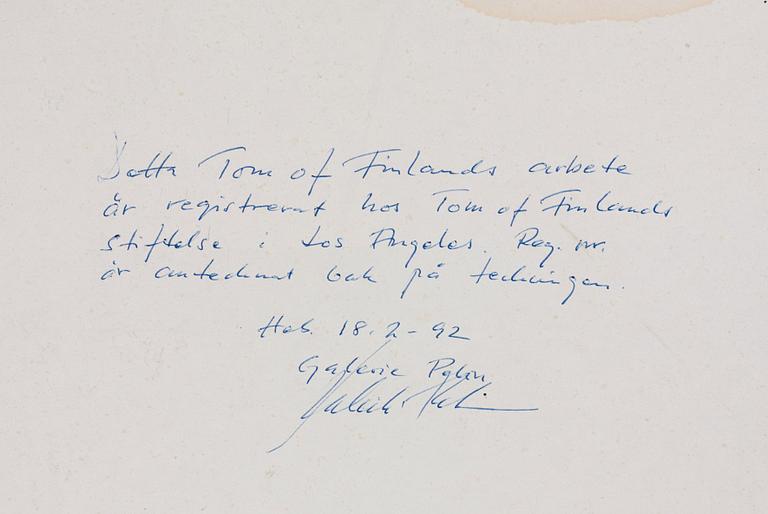 Detta Tom of Finlands arbete
är registrerat hos Tom of Finlands
stiftelse i Los Angeles. Reg. nr.
är antecknat bak på teckningen.
Hels. 18.2-92
Galerie Pelin